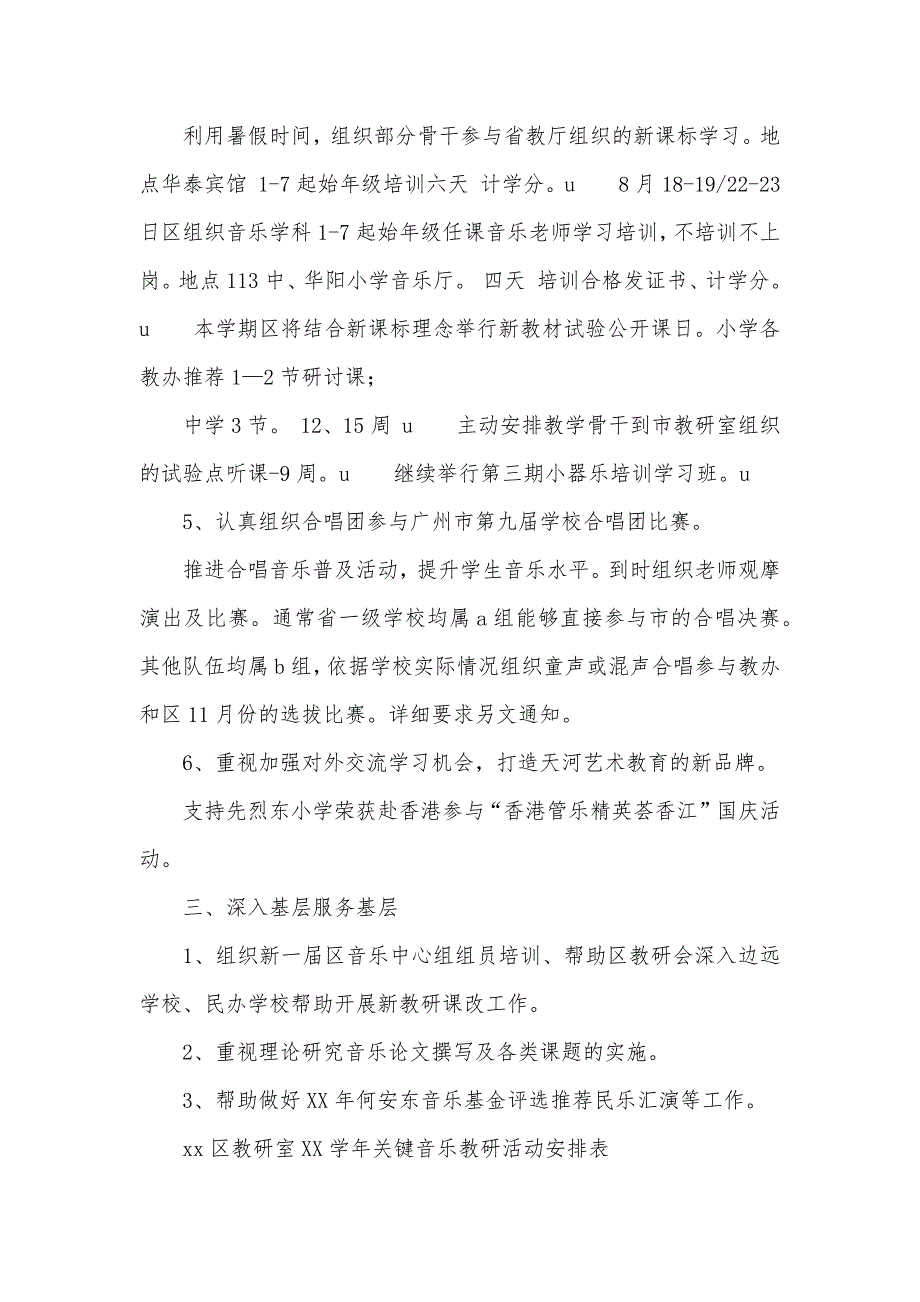 利用暑假时间，组织部分骨干参与省教厅组织的新课标学习。地
点华泰宾馆 1-7起始年级培训六天 计学分。u　　8月18-19/22-23
日区组织音乐学科1-7起始年级任课音乐老师学习培训，不培训不上
岗。地点113中、华阳小学音乐厅。 四天 培训合格发证书、计学分。
u　　本学期区将结合新课标理念举行新教材试验公开课日。小学各
教办推荐1—2节研讨课；
中学3节。 12、15周 u　　主动安排教学骨干到市教研室组织
的试验点听课-9周。u　　继续举行第三期小器乐培训学习班。u
5、认真组织合唱团参与广州市第九届学校合唱团比赛。
推进合唱音乐普及活动，提升学生音乐水平。到时组织老师观摩
演出及比赛。通常省一级学校均属a组能够直接参与市的合唱决赛。
其他队伍均属b组，依据学校实际情况组织童声或混声合唱参与教办
和区11月份的选拔比赛。详细要求另文通知。
6、重视加强对外交流学习机会，打造天河艺术教育的新品牌。
支持先烈东小学荣获赴香港参与“香港管乐精英荟香江”国庆活
动。
三、深入基层服务基层
1、组织新一届区音乐中心组组员培训、帮助区教研会深入边远
学校、民办学校帮助开展新教研课改工作。
2、重视理论研究音乐论文撰写及各类课题的实施。
3、帮助做好XX年何安东音乐基金评选推荐民乐汇演等工作。
xx区教研室XX学年关键音乐教研活动安排表